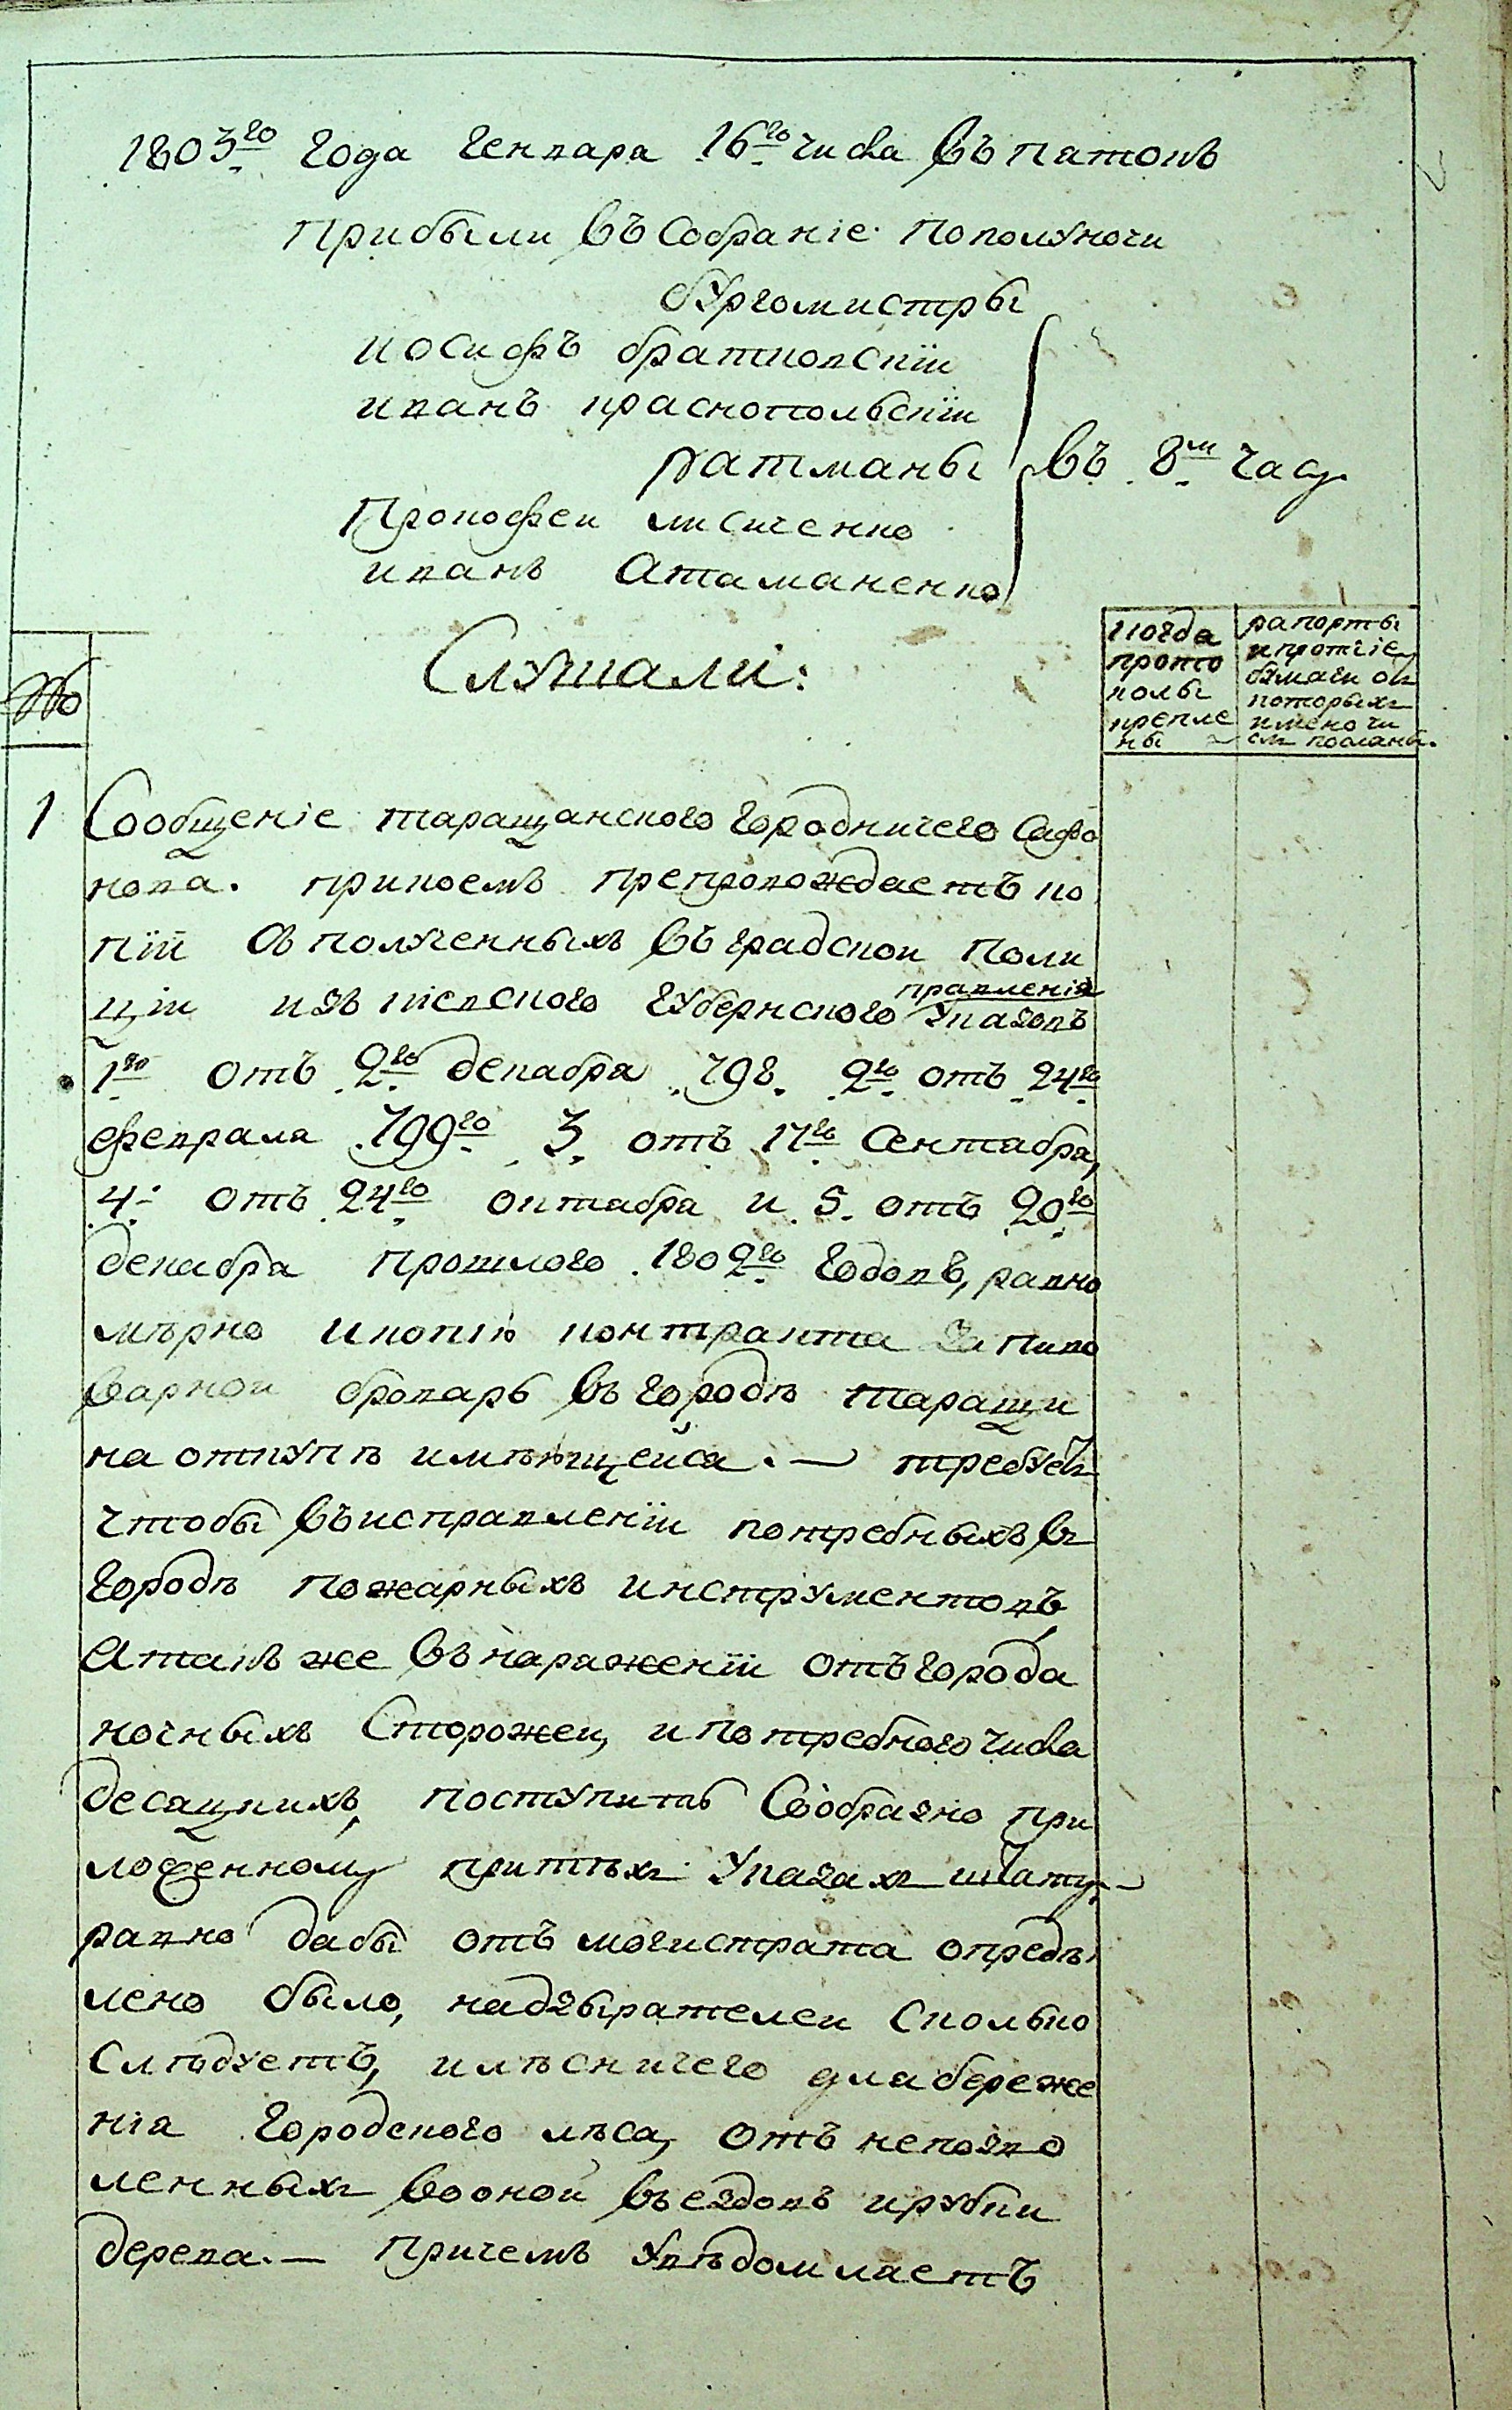 9
1803го Года Генваря 16го числа въ пятокъ
Прибыли въ Собраніе пополуночи
бургомистры
иосифъ братковскїи
иванъ краснопольскїи
ратманы
въ 8м часу
Прокофеи лисиченко
иванъ Атаманенко
Слушали:
№
когда
прото
колы
крепле
ны
рапорты
и протчіе
бумаги от
которых
имено чи
сл посланы.
1 Сообщеніе таращанского Городничего Сафо
нова. прикоемъ препровождаетъ ко
пїй съ полученныхъ въ градской поли
цїи изъ кіевского Губернского правленія Указовъ
1го отъ 2го декабря 798. 2го отъ 24го
февраля 799го 3. отъ 17го Сентября,
4. отъ 24го октября и 5. отъ 20го
декабря прошлого 1802го Годовъ, равно
мѣрно и копїю контракта за пиво
варной броварь въ городѣ таращи
на откупѣ имѣющейся. — требуетъ
чтобы въ исправленїи потребныхъ въ
городѣ пожарныхъ инструментовъ
Атакъ же въ наряженїи отъ города
ночныхъ Сторожеи, и потребного числа
десяцкихъ, поступить Сообразно при
ложенному притѣхъ Указахъ штату.—
равно дабы отъ могистрата опредѣ
лено было, надзырателеи сколько
Слѣдуетъ, и лѣсничего для береже
нія Городского лѣса, отъ непозво
ленныхъ воонои въездовъ и рубки
дерева. — Причемъ Увѣдомляетъ